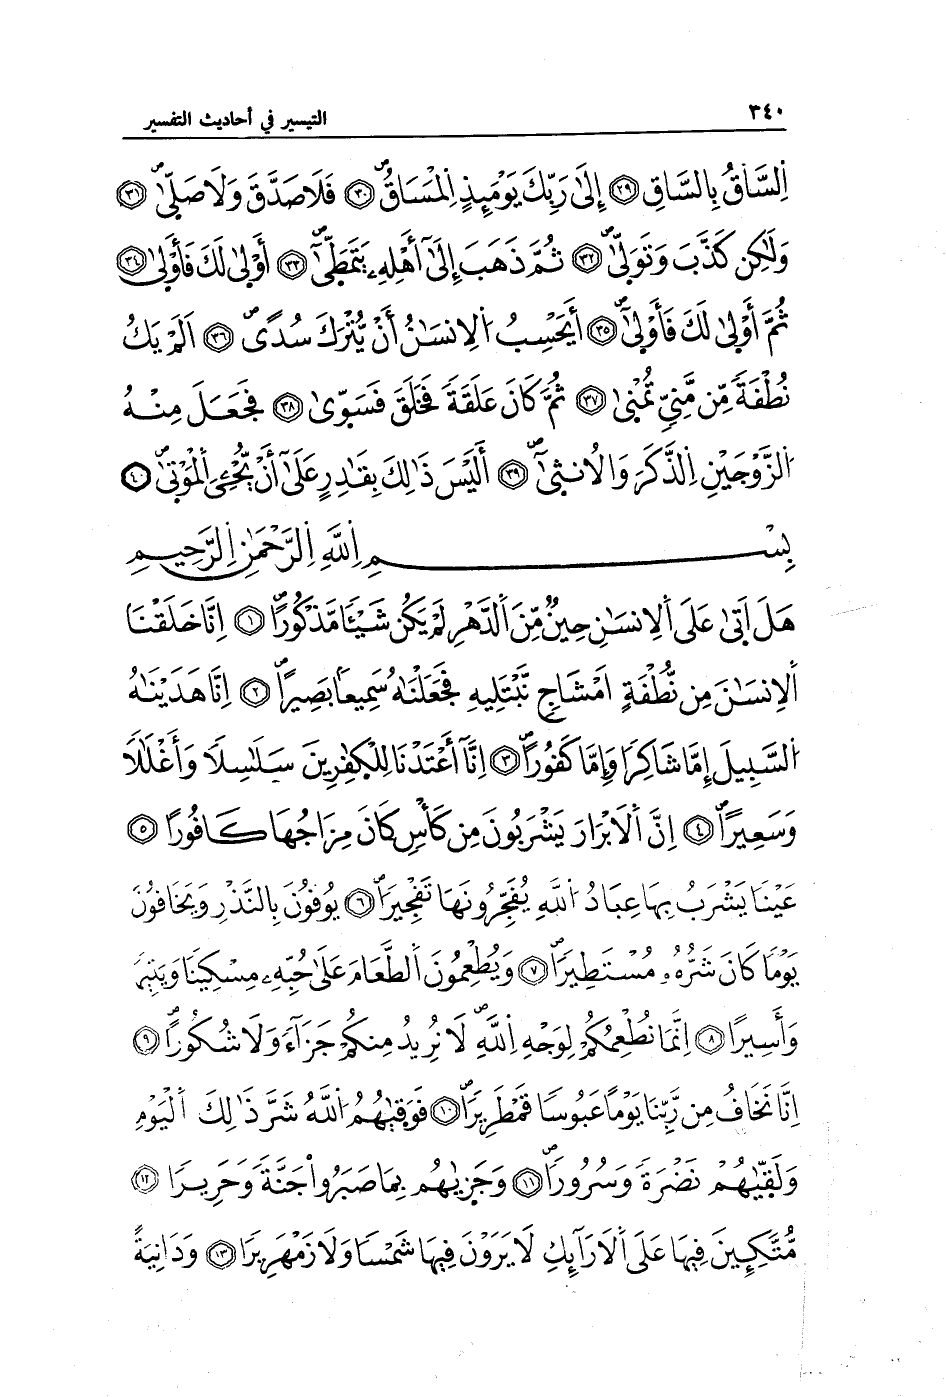 ٣٤٠ التيسير في أحاديث التفسير
اِ۬لسَّاقُ بِالسَّاقِ ٢٩ إِلَىٰ رَبِّكَ يَوْمَئِذٍ اِ۬لْمَسَاقُ ٣٠ فَلَا صَدَّقَ وَلَا صَلَّىٰ ٣١
وَلَٰكِن كَذَّبَ وَتَوَلَّىٰ ٣٢ ثُمَّ ذَهَبَ إِلَىٰٓ أَهْلِهِۦ يَتَمَطَّىٰٓ ٣٣ أَوْلَىٰ لَكَ فَأَوْلَىٰ ٣٤
ثُمَّ أَوْلَىٰ لَكَ فَأَوْلَىٰٓ ٣٥ أَيَحْسِبُ اُ۬لِانسَٰنُ أَنْ يُّتْرَكَ سُدًى ٣٦ اَلَمْ يَكُ
نُطْفَةً مِّن مَّنِيٍّ تُمْنَىٰ ٣٧ ثُمَّ كَانَ عَلَقَةً فَخَلَقَ فَسَوَّىٰ ٣٨ فَجَعَلَ مِنْهُ
اُ۬لزَّوْجَيْنِ اِ۬لذَّكَرَ وَالُانثَىٰٓ ٣٩ أَلَيْسَ ذَٰلِكَ بِقَٰدِرٍ عَلَىٰٓ أَنْ يُّحْيِيَ اَ۬لْمَوْتَىٰ ٤٠
بِسْمِ اِ۬للَّهِ اِ۬لرَّحْمَٰنِ اِ۬لرَّحِيمِ
هَلَ اَتَىٰ عَلَى اَ۬لِانسَٰنِ حِينٌ مِّنَ اَ۬لدَّهْرِ لَمْ يَكُن شَيْئًا مَّذْكُورًا ١ اِنَّا خَلَقْنَا
اَ۬لِانسَٰنَ مِن نُّطْفَةٍ اَمْشَاجٍ نَّبْتَلِيهِ فَجَعَلْنَٰهُ سَمِيعًا بَصِيرًا ٢ اِنَّا هَدَيْنَٰهُ
اُ۬لسَّبِيلَ إِمَّا شَاكِرًا وَإِمَّا كَفُورًا ٣ اِنَّآ أَعْتَدْنَا لِلْكَٰفِرِينَ سَلَٰسِلًا وَأَغْلَٰلًا
وَسَعِيرًا ٤ اِنَّ اَ۬لَابْرَارَ يَشْرَبُونَ مِن كَأْسٍ كَانَ مِزَاجُهَا كَافُورًا ٥
عَيْنًا يَشْرَبُ بِهَا عِبَادُ اُ۬للَّهِ يُفَجِّرُونَهَا تَفْجِيرًا ٦ يُوفُونَ بِالنَّذْرِ وَيَخَافُونَ
يَوْمًا كَانَ شَرُّهُۥ مُسْتَطِيرًا ٧ وَيُطْعِمُونَ اَ۬لطَّعَامَ عَلَىٰ حُبِّهِۦ مِسْكِينًا وَيَتِيمًا
وَأَسِيرًا ٨ اِنَّمَا نُطْعِمُكُمْ لِوَجْهِ اِ۬للَّهِ لَا نُرِيدُ مِنكُمْ جَزَآءً وَلَا شُكُورًا ٩
اِنَّا نَخَافُ مِن رَّبِّنَا يَوْمًا عَبُوسًا قَمْطَرِيرًا ١٠ فَوَقَىٰهُمُ اُ۬للَّهُ شَرَّ ذَٰلِكَ اَ۬لْيَوْمِ
وَلَقَّىٰهُمْ نَضْرَةً وَسُرُورًا ١١ وَجَزَىٰهُم بِمَا صَبَرُواْ جَنَّةً وَحَرِيرًا ١٢
مُّتَّكِـِٕينَ فِيهَا عَلَى اَ۬لَارَآئِكِ لَا يَرَوْنَ فِيهَا شَمْسًا وَلَا زَمْهَرِيرًا ١٣ وَدَانِيَةً